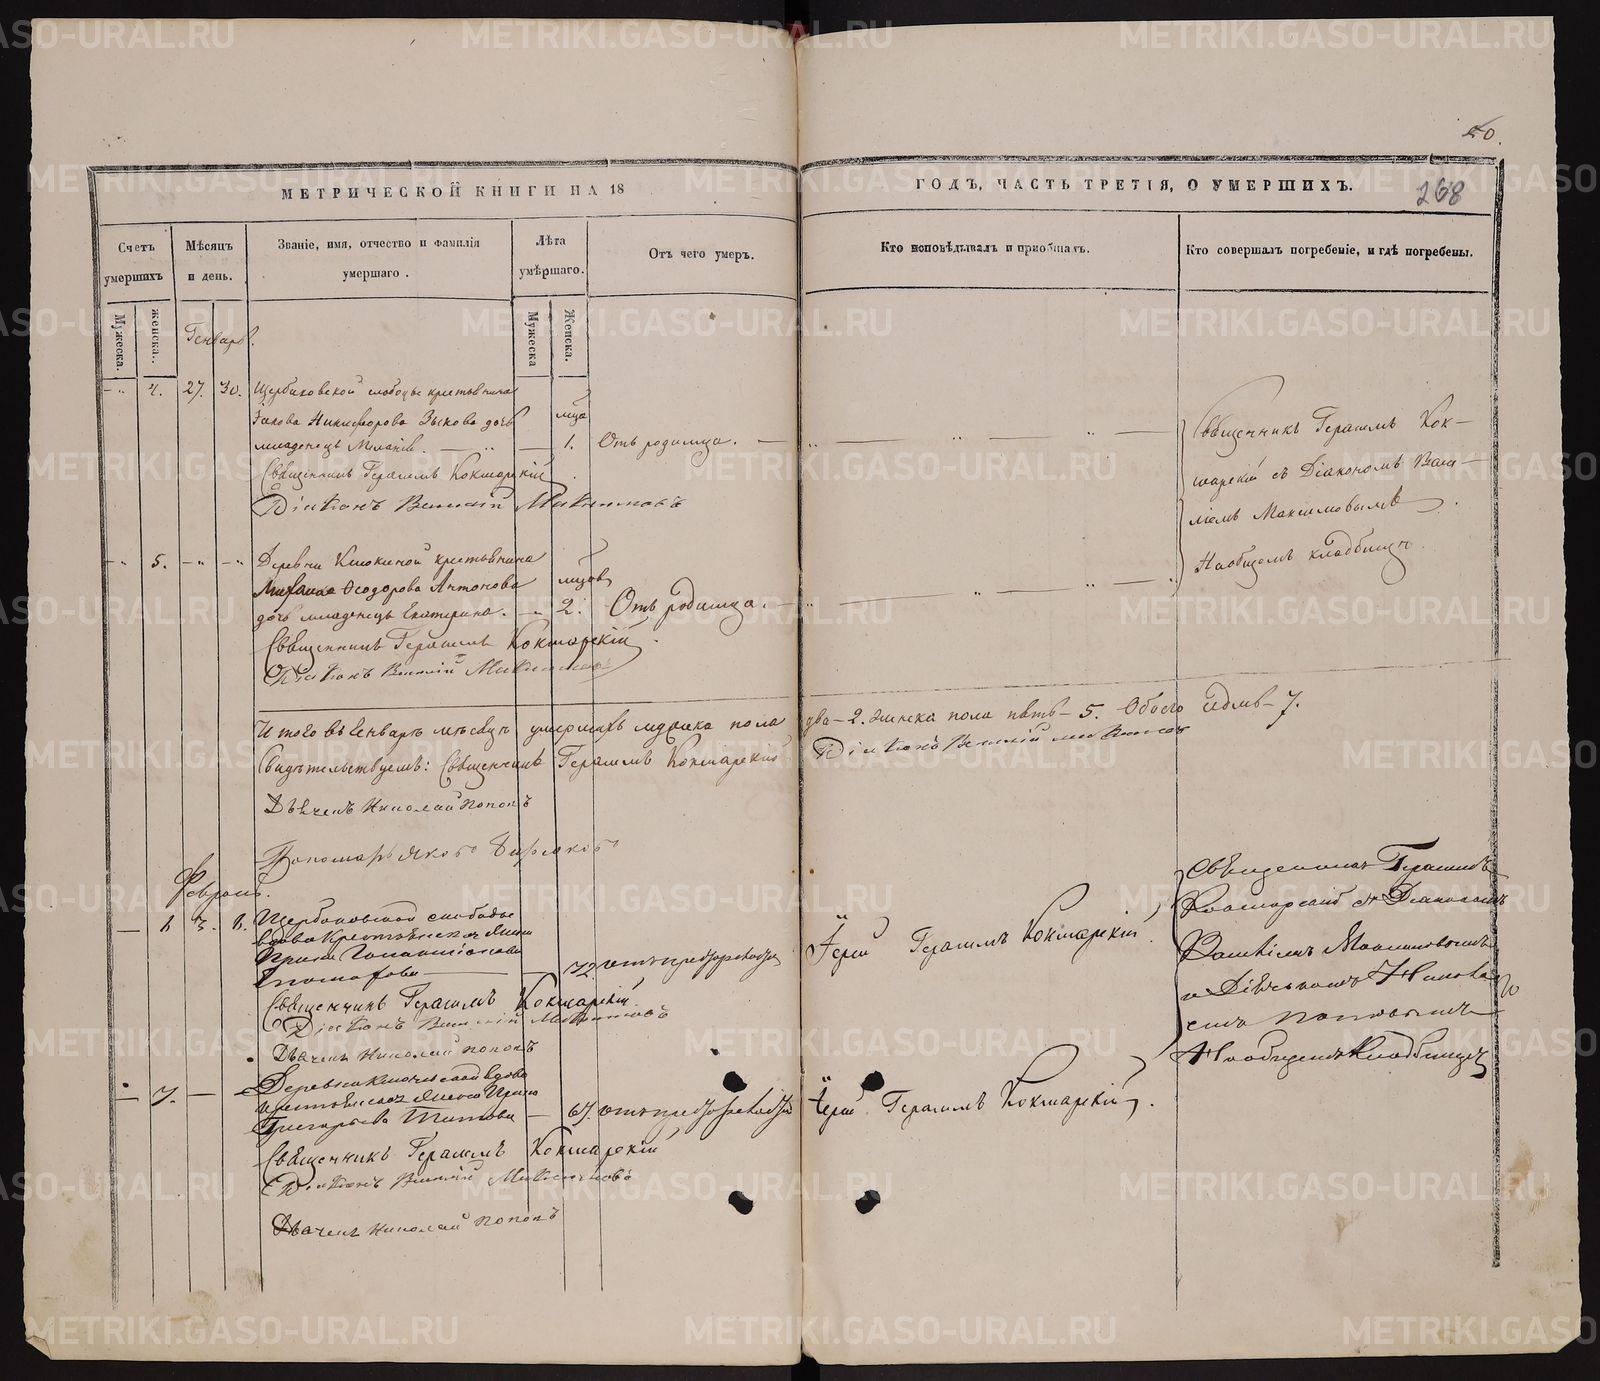 50.
МЕТРИЧЕСКОЙ КНИГИ НА 18
ГОДЪ, ЧАСТЬ ТРЕТІЯ, О УМЕРШИХЪ.
268
Счетъ умершихъ
Мѣсяцъ и день.
Званіе, имя, отчество и фамилія умершаго.
Лѣта умершаго.
Отъ чего умеръ.
Кто исповѣдывалъ и пріобщалъ.
Кто совершалъ погребеніе, и гдѣ погребены.
Мужеска.
женска.
Мужеска
Женска.
Генварь.
4. 27. 30. Щербаковской слободы крестьянина
Іакова Никифорова Зыкова дочь
мца
младенецъ Меланія. 1. Отъ родимца.
Священникъ Герасимъ Кокшарскій
Діаконъ Василій Максимовъ
Священникъ Герасимъ Кок-
шарскій съ Діакономъ Васи-
ліемъ Максимовымъ.
На общемъ кладбищѣ.
5. Деревни Клюкиной крестьянина
Михаила Ѳеодорова Антонова
мцов
дочь младенецъ Екатерина. 2. Отъ родимца.
Священникъ Герасимъ Кокшарскій.
Діаконъ Василій Максимовъ
Итого въ Генварѣ мѣсяцѣ умершихъ мужска пола два - 2. женска пола пять - 5. Обоего седмь - 7.
Свидѣтельствуемъ: Священникъ Герасимъ Кокшарскій
Діаконъ Василій Максимовъ
Дьячекъ Николай Поповъ
Пономарь Яковъ
Февраль.
6. 3. 6. Щербаковской слободы
вдова крестьянская жена
Ирина
72 отъ престарелости
Іерей Герасимъ Кокшарскій
Священникъ Герасимъ Кокшарскій.
Діаконъ Василій Максимовъ
Дьячекъ Николай Поповъ
Священникъ Герасимъ
Кокшарскій съ Діакономъ
Василіемъ Максимовымъ
и Дьячкомъ Никола
емъ Поповымъ
На общемъ кладбищѣ
7. Деревни Клюкиной вдова
крестьянская жена Ирина
Григорьева Титова 67. отъ престарелости
Іерей Герасимъ Кокшарскій.
Священникъ Герасимъ Кокшарскій
Діаконъ Василій Максимовъ
Дьячекъ Николай Поповъ
METRIKI.GASO-URAL.RU